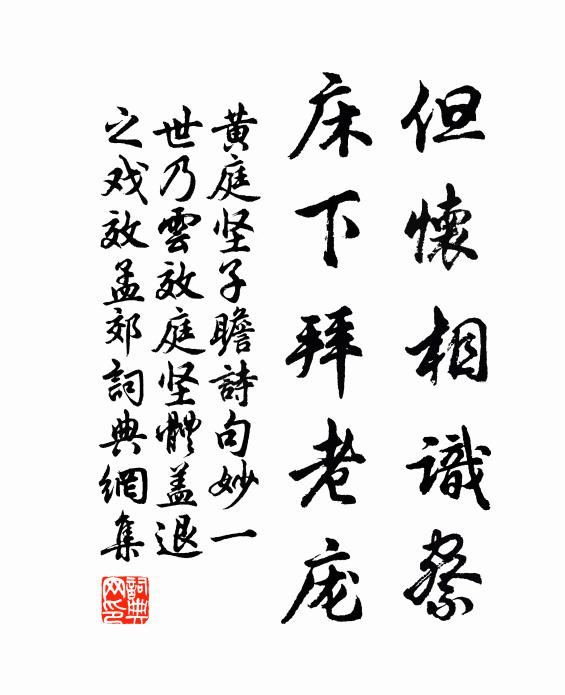 但懷相識察
床下拜老庞
黄庭坚子瞻詩句妙一
世乃雲效庭坚體盖退
之戏效孟郊詞典網集
詞典网印